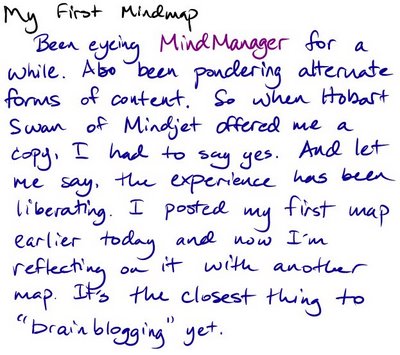 My First Mindmap
Been eyeing MindManager for a
while. Also been pondering alternate
forms of content. So when Hobart
Swan of Mindjet offered me a
copy, I had to say yes. And let
me say, the experience has been
liberating. I posted my first map
earlier today and now I'm
reflecting on it with another
map. It's the closest thing to
"brainblogging" yet.